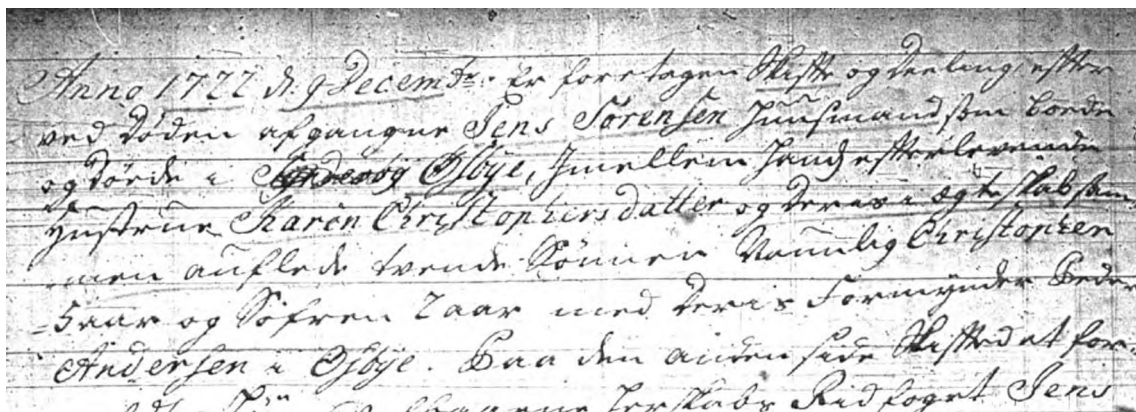 Anno 1722 d. 9 Decembr: Er foretagen Skiffte og deeling effter
ved døden afgangne Jens Sørensen Huusmand som boede
og døde i Øsbÿe, Jmellem hands effterlevende
Hustrue Karen Christophers datter og deris i ægteskab sam,
men auflede tvende Sønner Naunlig Christopher
5 aar og Søfren 2 aar med deris Formÿnder Peder
Andersen i Øsbÿe. Paa den anden side Skiffted at for,
herskabs Ridfoget Jens